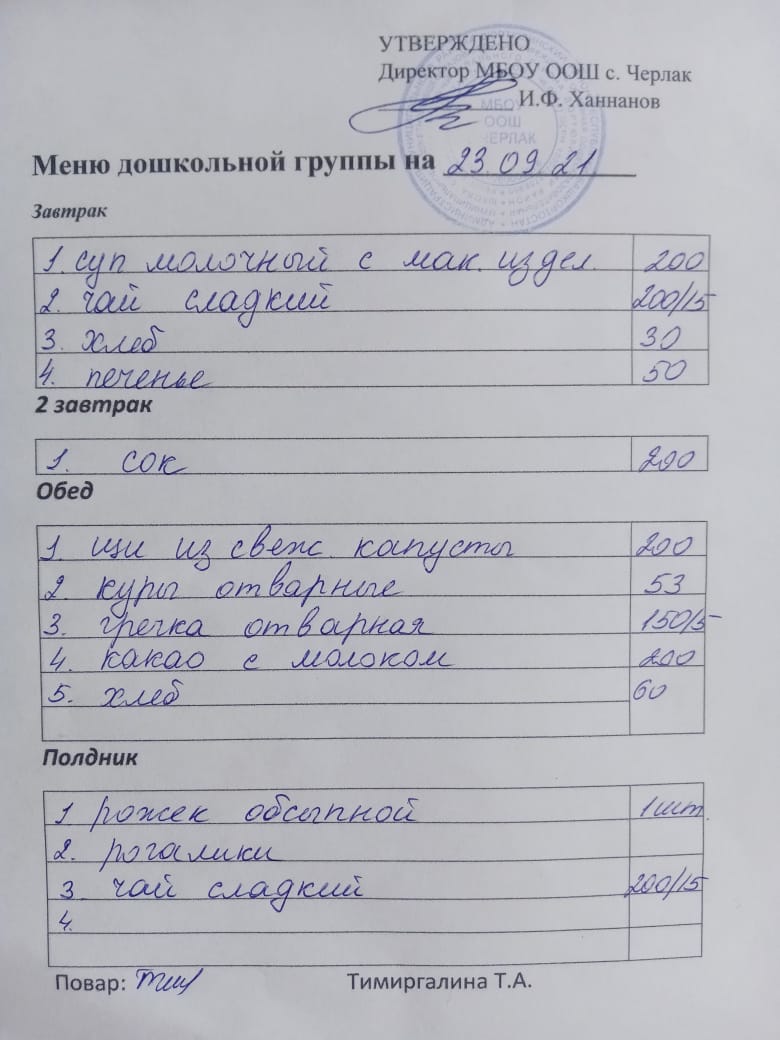 УТВЕРЖДЕНО
Директор МБОУ ООШ с. Черлак
И.Ф. Ханнанов
МБОУ
ООШ
ЧЕРЛАК
Меню дошкольной группы на 23.09.21
Завтрак
1. суп молочный с мак. издел. 200
2. чай сладкий 200/15
3. хлеб 30
4. печенье 50
2 завтрак
1. сок 200
Обед
1. щи из свеж. капусты 200
2. куры отварные 53
3. гречка отварная 150/5
4. какао с молоком 200
5. хлеб 60
Полдник
1 рожек обсыпной 1 шт.
2. рогалики
3. чай сладкий 200/15
4.
Повар: Тимиргалина Т.А.